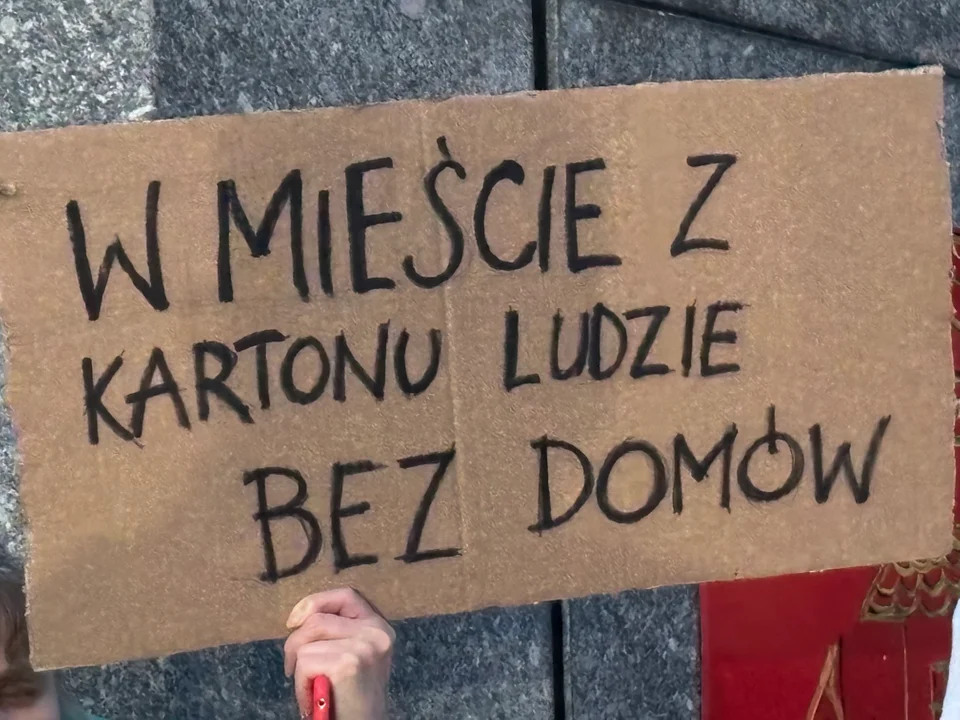 W MIEŚCIE Z
KARTONU LUDZIE
BEZ DOMÓW